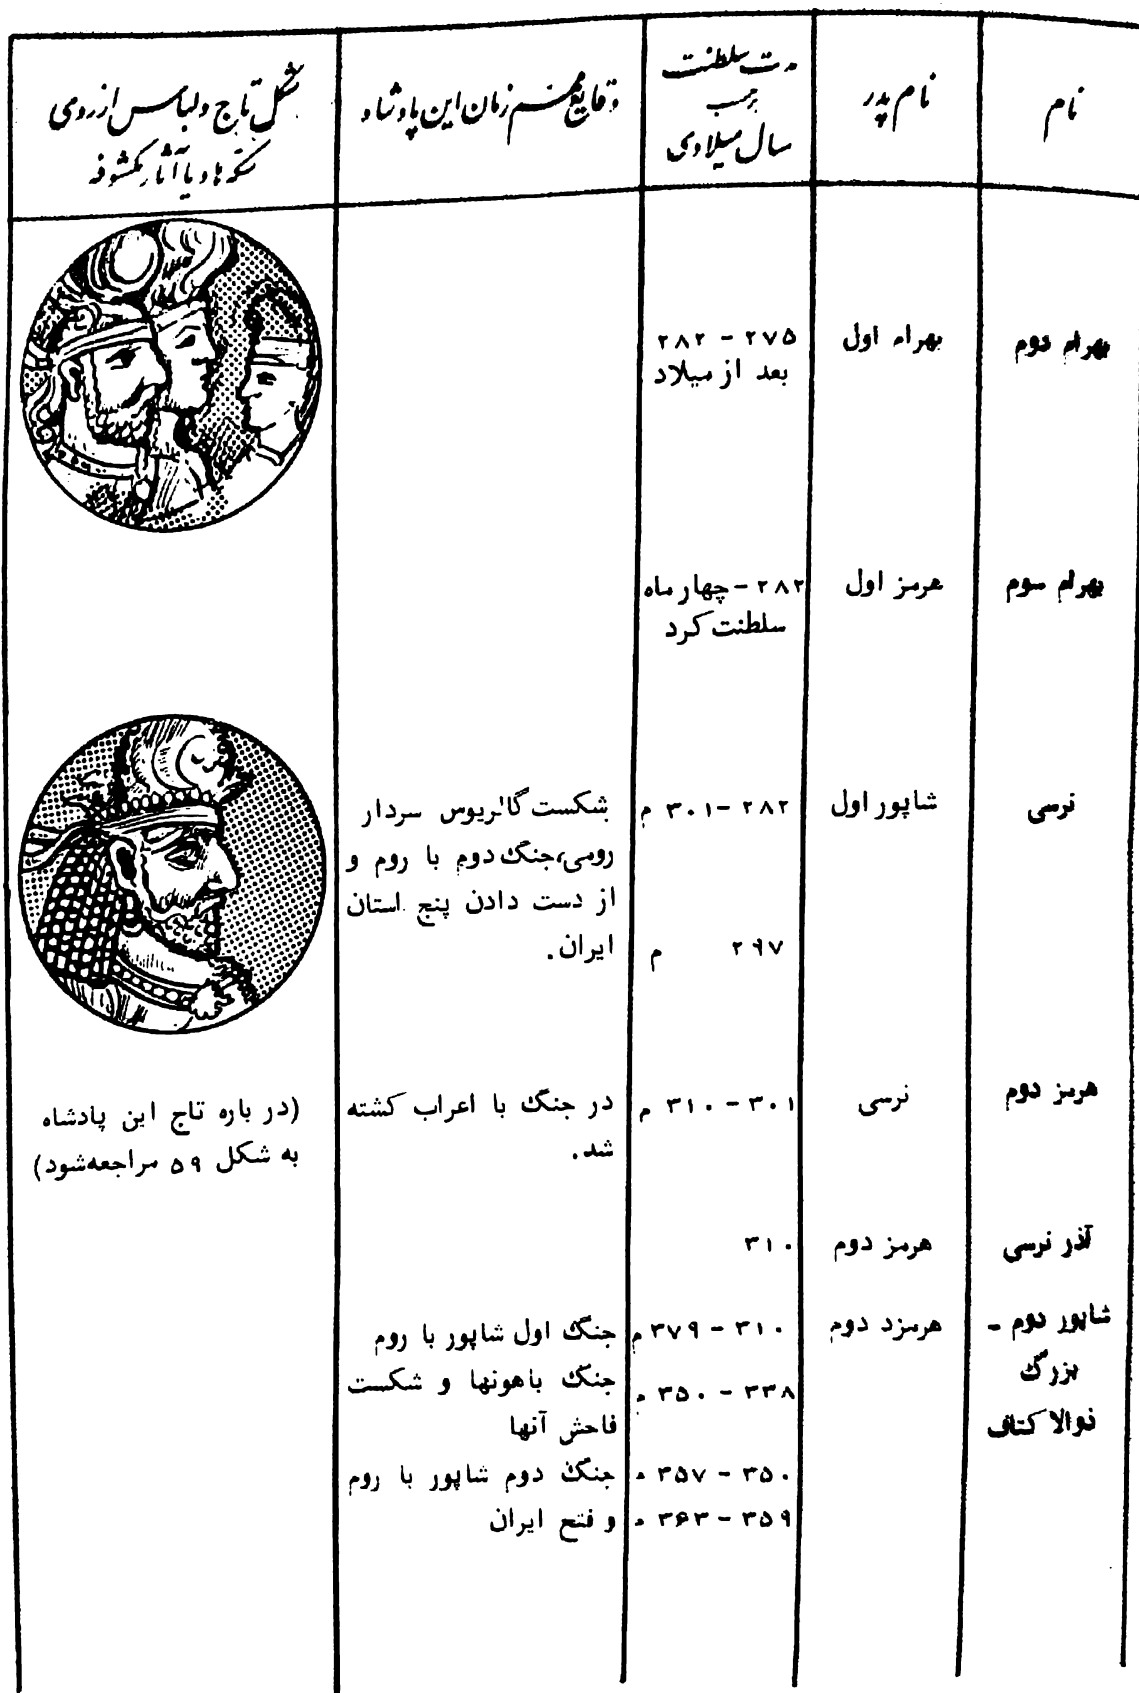 نام
نام پدر
مدت سلطنت
برحسب
سال میلادی
وقایع مهم زمان این پادشاه
شکل تاج و لباس از روی
سکه ها و یا آثار مکشوفه
بهرام دوم
بهرام اول
۲۷۵ - ۲۸۲
بعد از میلاد
بهرام سوم
هرمز اول
۲۸۲ - چهار ماه
سلطنت کرد
نرسی
شاپور اول
۲۸۲ - ۳۰۱ م
۲۹۷ م
شکست گالریوس سردار
رومی، جنگ دوم با روم و
از دست دادن پنج استان
ایران.
هرمز دوم
نرسی
۳۰۱ - ۳۱۰ م
در جنگ با اعراب کشته
شد.
(در باره تاج این پادشاه
به شکل ۵۹ مراجعه‌شود)
آذر نرسی
هرمز دوم
۳۱۰
شاپور دوم -
بزرگ
ذوالاکتاف
هرمزد دوم
۳۱۰ - ۳۷۹ م
۳۳۸ - ۳۵۰ م
۳۵۰ - ۳۵۷ م
۳۵۹ - ۳۶۳ م
جنگ اول شاپور با روم
جنگ باهونها و شکست
فاحش آنها
جنگ دوم شاپور با روم
و فتح ایران